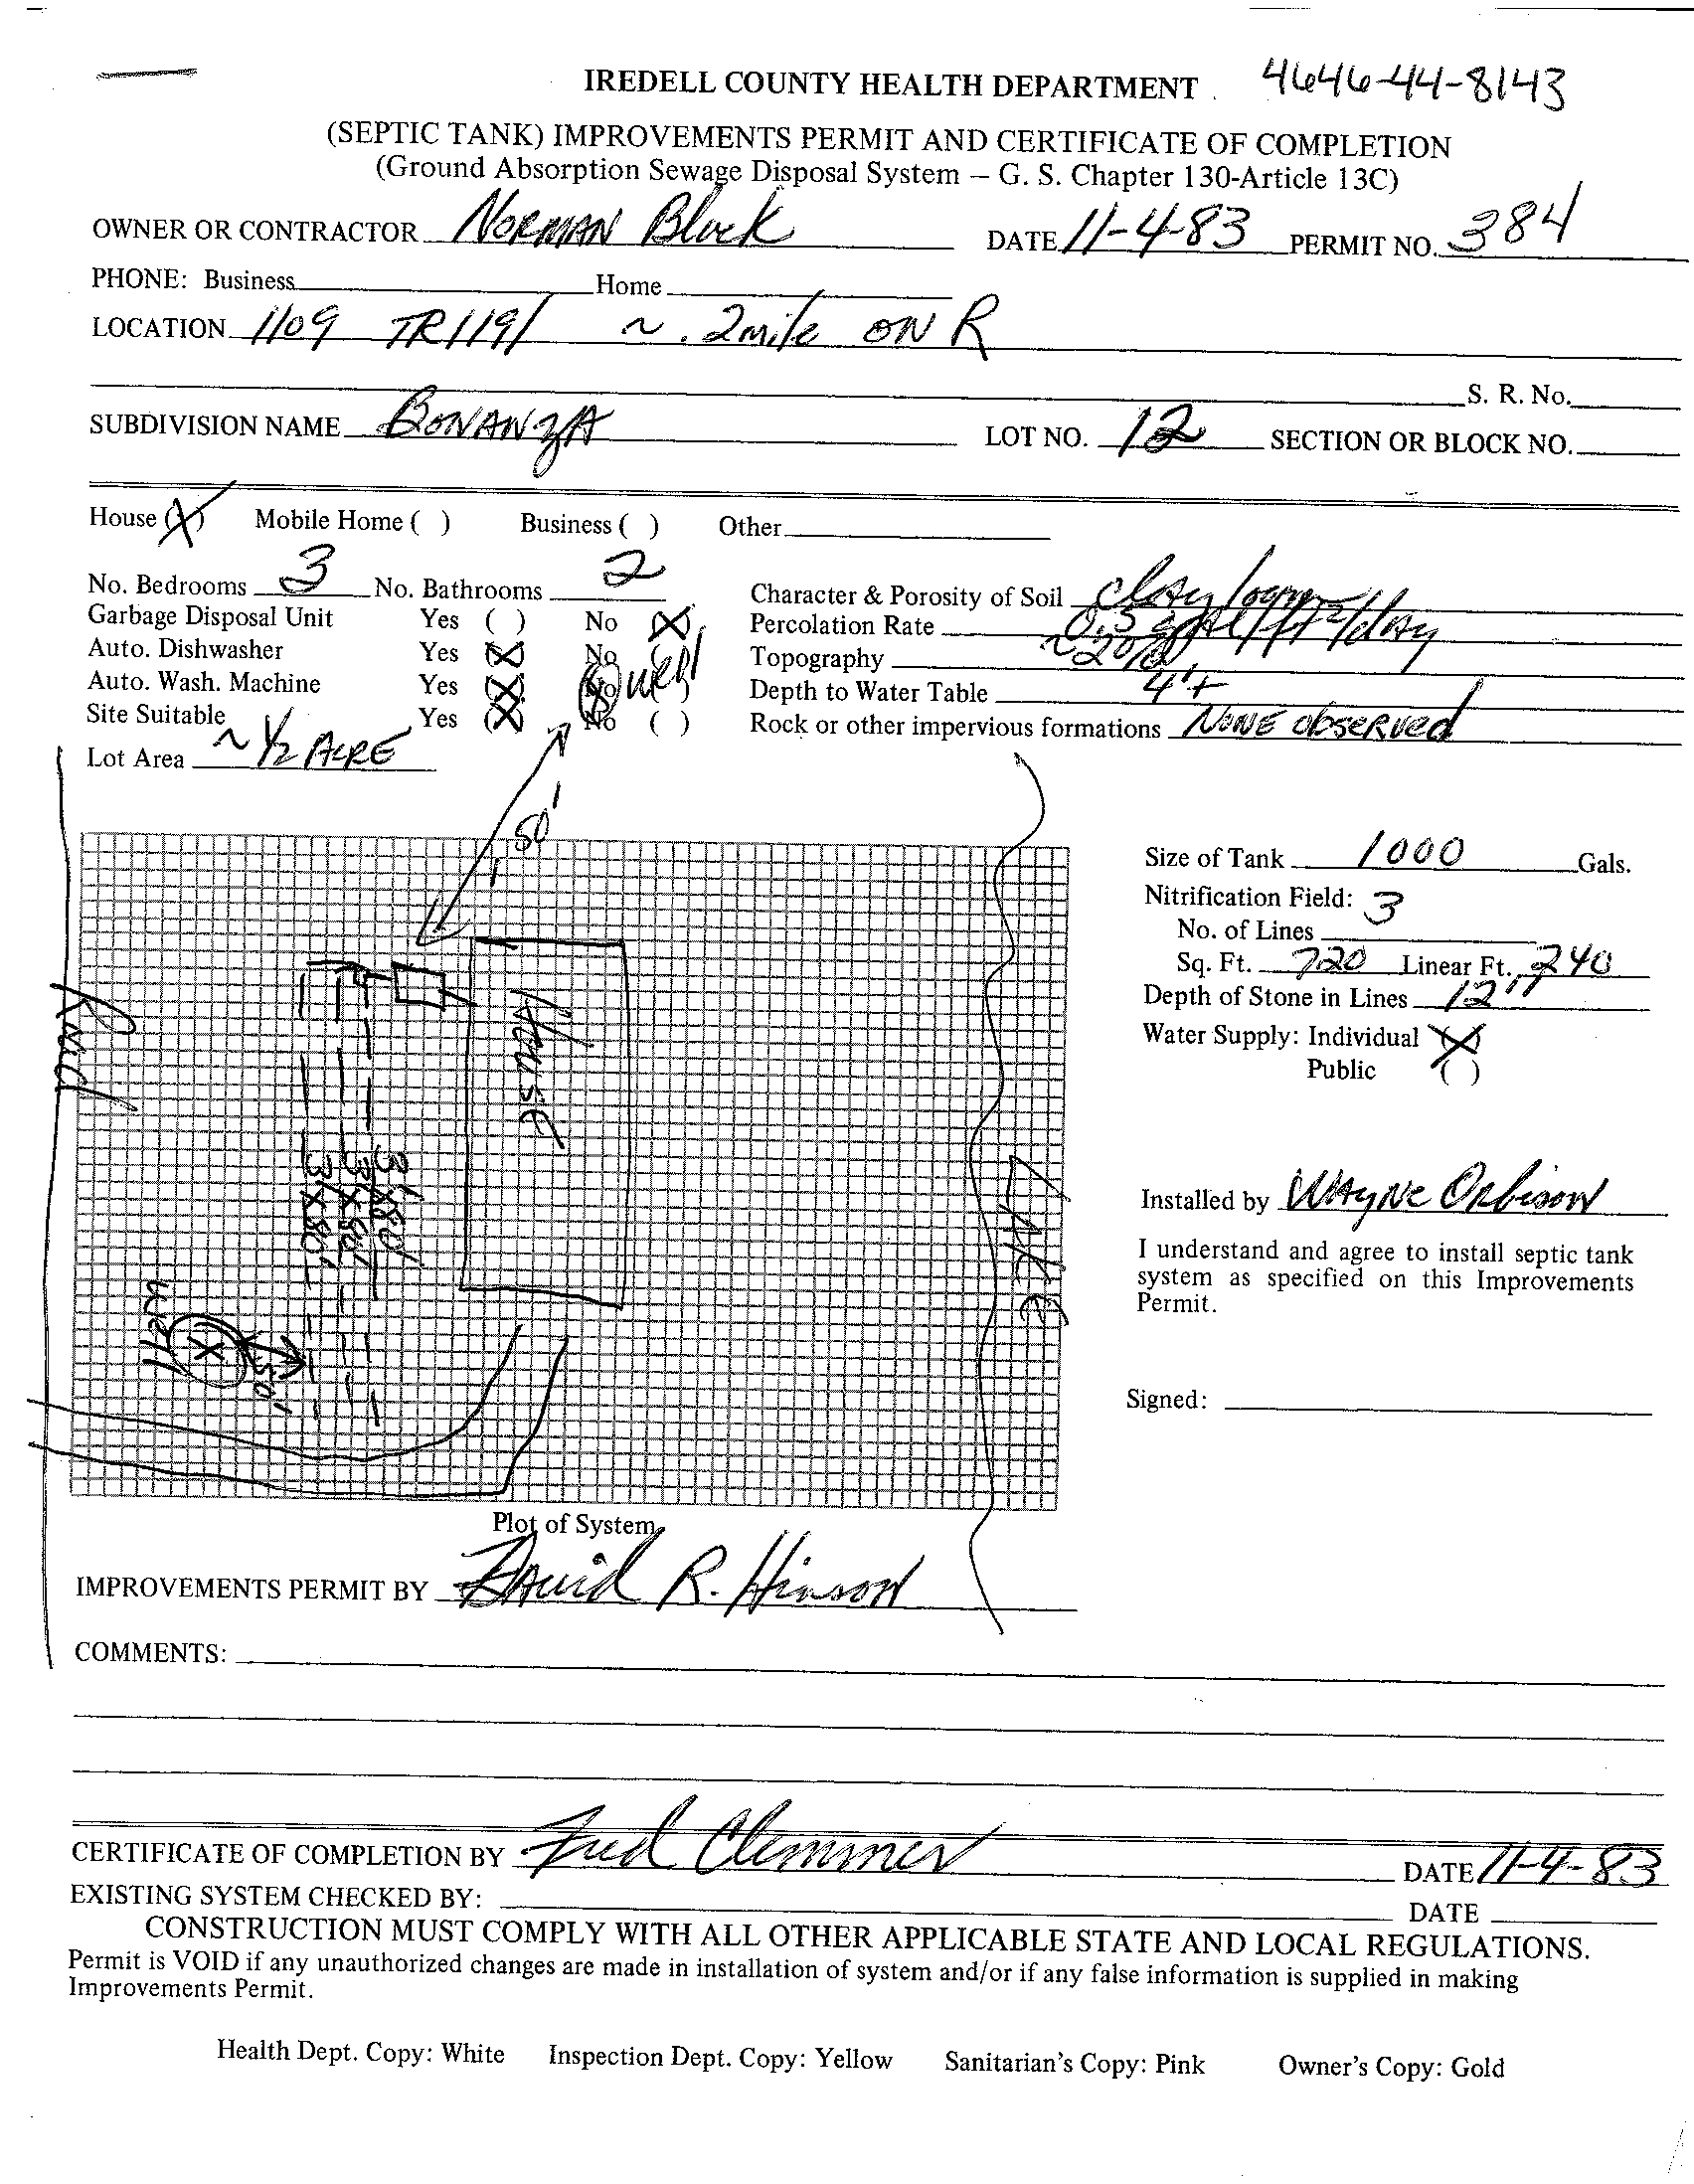 IREDELL COUNTY HEALTH DEPARTMENT 4646-44-8143
(SEPTIC TANK) IMPROVEMENTS PERMIT AND CERTIFICATE OF COMPLETION
(Ground Absorption Sewage Disposal System – G. S. Chapter 130-Article 13C)
OWNER OR CONTRACTOR NORMAN Block DATE 11-4-83 PERMIT NO. 384
PHONE: Business Home
LOCATION 1109 TR1191 ~ .2 mile ON R
S. R. No.
SUBDIVISION NAME BONANZA LOT NO. 12 SECTION OR BLOCK NO.
House (X) Mobile Home ( ) Business ( ) Other
No. Bedrooms 3 No. Bathrooms 2 Character & Porosity of Soil clay loam
Garbage Disposal Unit Yes ( ) No (X) Percolation Rate 0.3 gal/ft²/day
Auto. Dishwasher Yes (X) No ( ) Topography ~20%
Auto. Wash. Machine Yes (X) No ( ) Depth to Water Table 4'+
Site Suitable Yes (X) No ( ) Rock or other impervious formations NONE observed
well
Lot Area ~ ½ ACRE
50'
Size of Tank 1000 Gals.
Nitrification Field:
No. of Lines 3
Sq. Ft. 720 Linear Ft. 240
Depth of Stone in Lines 12"
Water Supply: Individual (X)
Public ( )
Road
House
3'x80'
3'x80'
3'x80'
LAKE
Well
X
50'
Installed by WAYNE Orbison
I understand and agree to install septic tank
system as specified on this Improvements
Permit.
Signed:
Plot of System
IMPROVEMENTS PERMIT BY David R. Hinson
COMMENTS:
CERTIFICATE OF COMPLETION BY Fred Clemmer DATE 11-4-83
EXISTING SYSTEM CHECKED BY: DATE
CONSTRUCTION MUST COMPLY WITH ALL OTHER APPLICABLE STATE AND LOCAL REGULATIONS.
Permit is VOID if any unauthorized changes are made in installation of system and/or if any false information is supplied in making
Improvements Permit.
Health Dept. Copy: White Inspection Dept. Copy: Yellow Sanitarian's Copy: Pink Owner's Copy: Gold